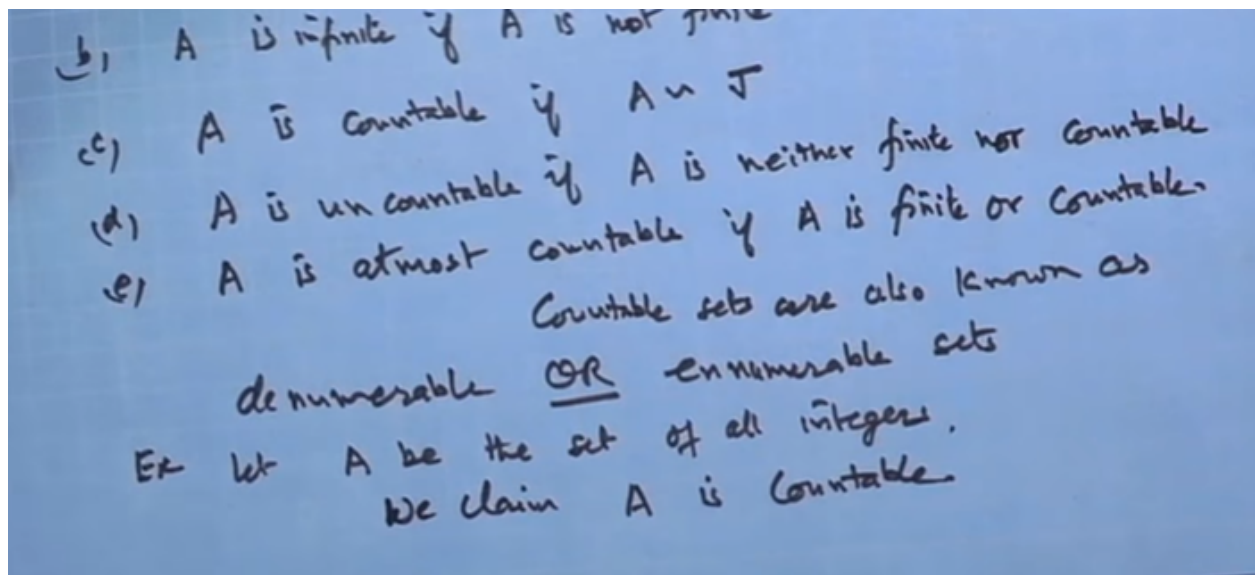 (b) A is infinite if A is not finite
(c) A is countable if A ~ J
(d) A is uncountable if A is neither finite nor countable
(e) A is atmost countable if A is finite or countable.
Countable sets are also known as
denumerable OR ennumerable sets
Ex let A be the set of all integers.
We claim A is Countable.